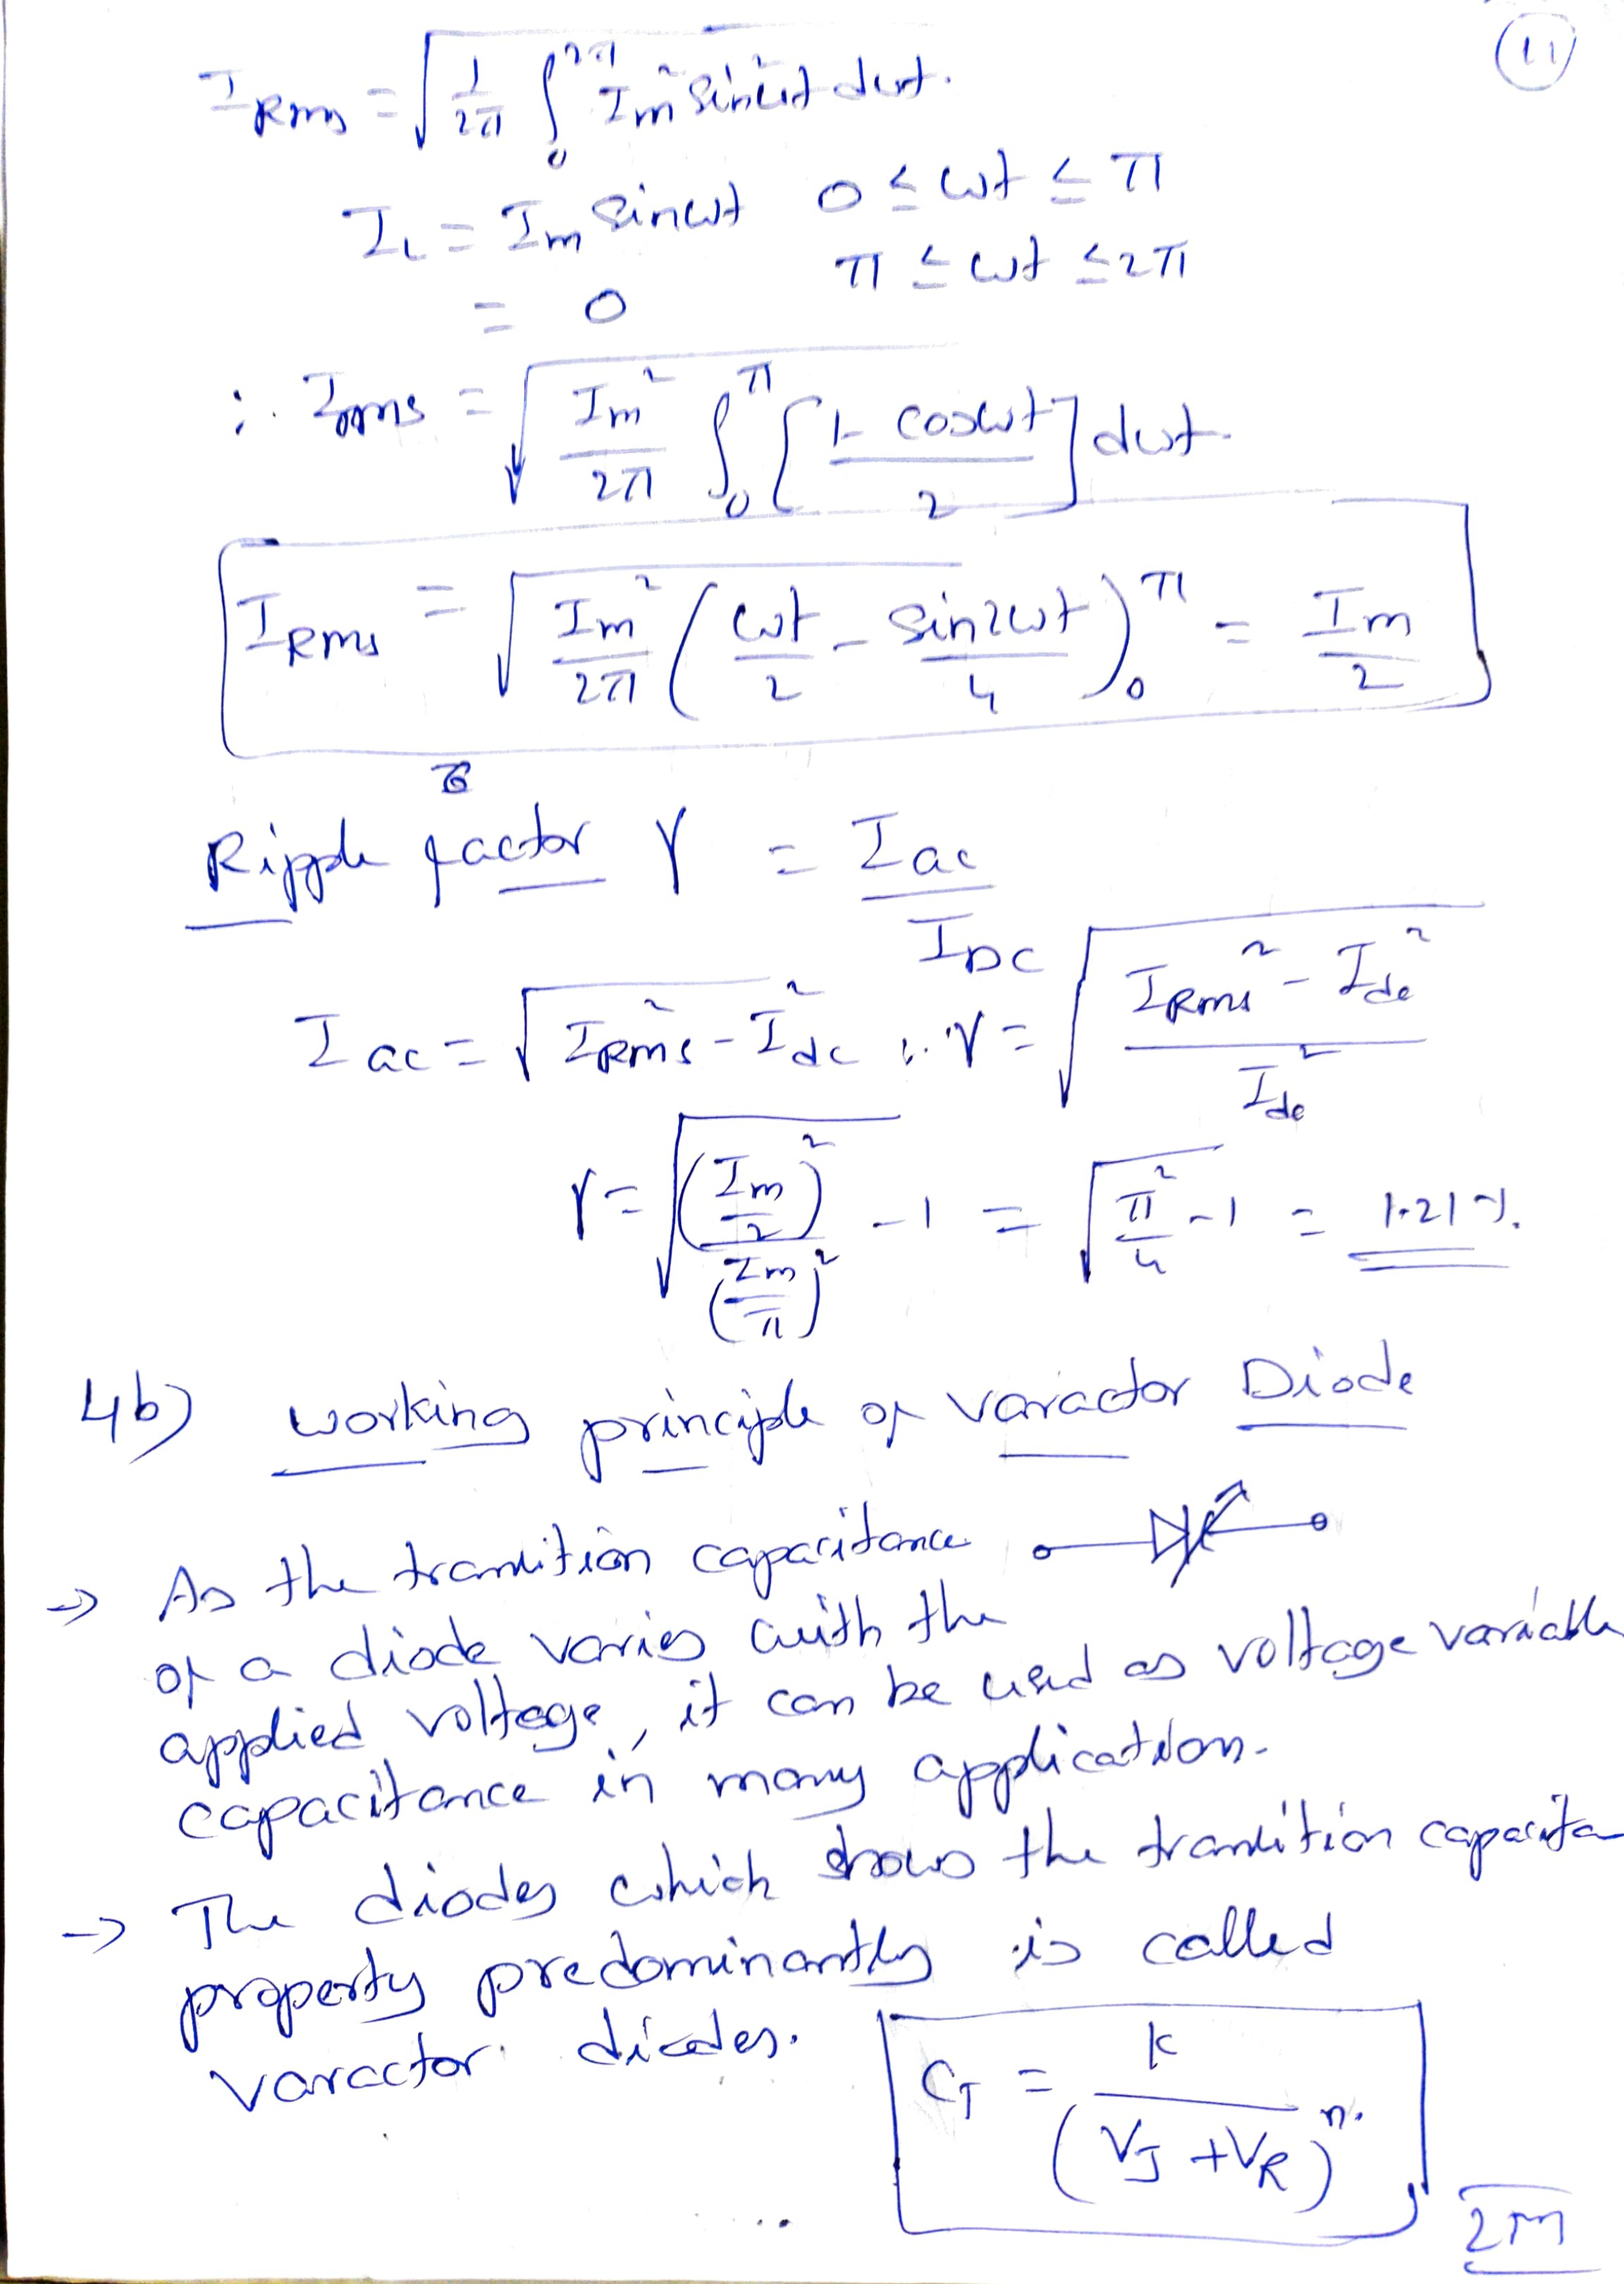 11
I_RMS = √(1/2π ∫₀^2π Im² sin²ωt dωt.
I_L = Im sinωt 0 ≤ ωt ≤ π
= 0 π ≤ ωt ≤ 2π
∴ Irms = √(Im²/2π ∫₀^π [(1- cosωt)/2] dωt
I_RMS = √(Im²/2π (ωt/2 - sin2ωt/4)₀^π = Im/2
Ripple factor γ = Iac/I_DC
Iac = √(I²_RMS - I²dc ∴ γ = √((I_RMS² - Idc²)/Idc²)
γ = √((Im/2)²/(Im/π)² - 1 = √(π²/4 - 1 = 1.21 %.
4b) working principle of varactor Diode
→ As the transition capacitance
of a diode varies with the
applied voltage, it can be used as voltage variable
capacitance in many application.
→ The diodes which shows the transition capacita
property predominantly is called
varactor diodes.
C_T = K/(V_J + V_R)^n.
2M